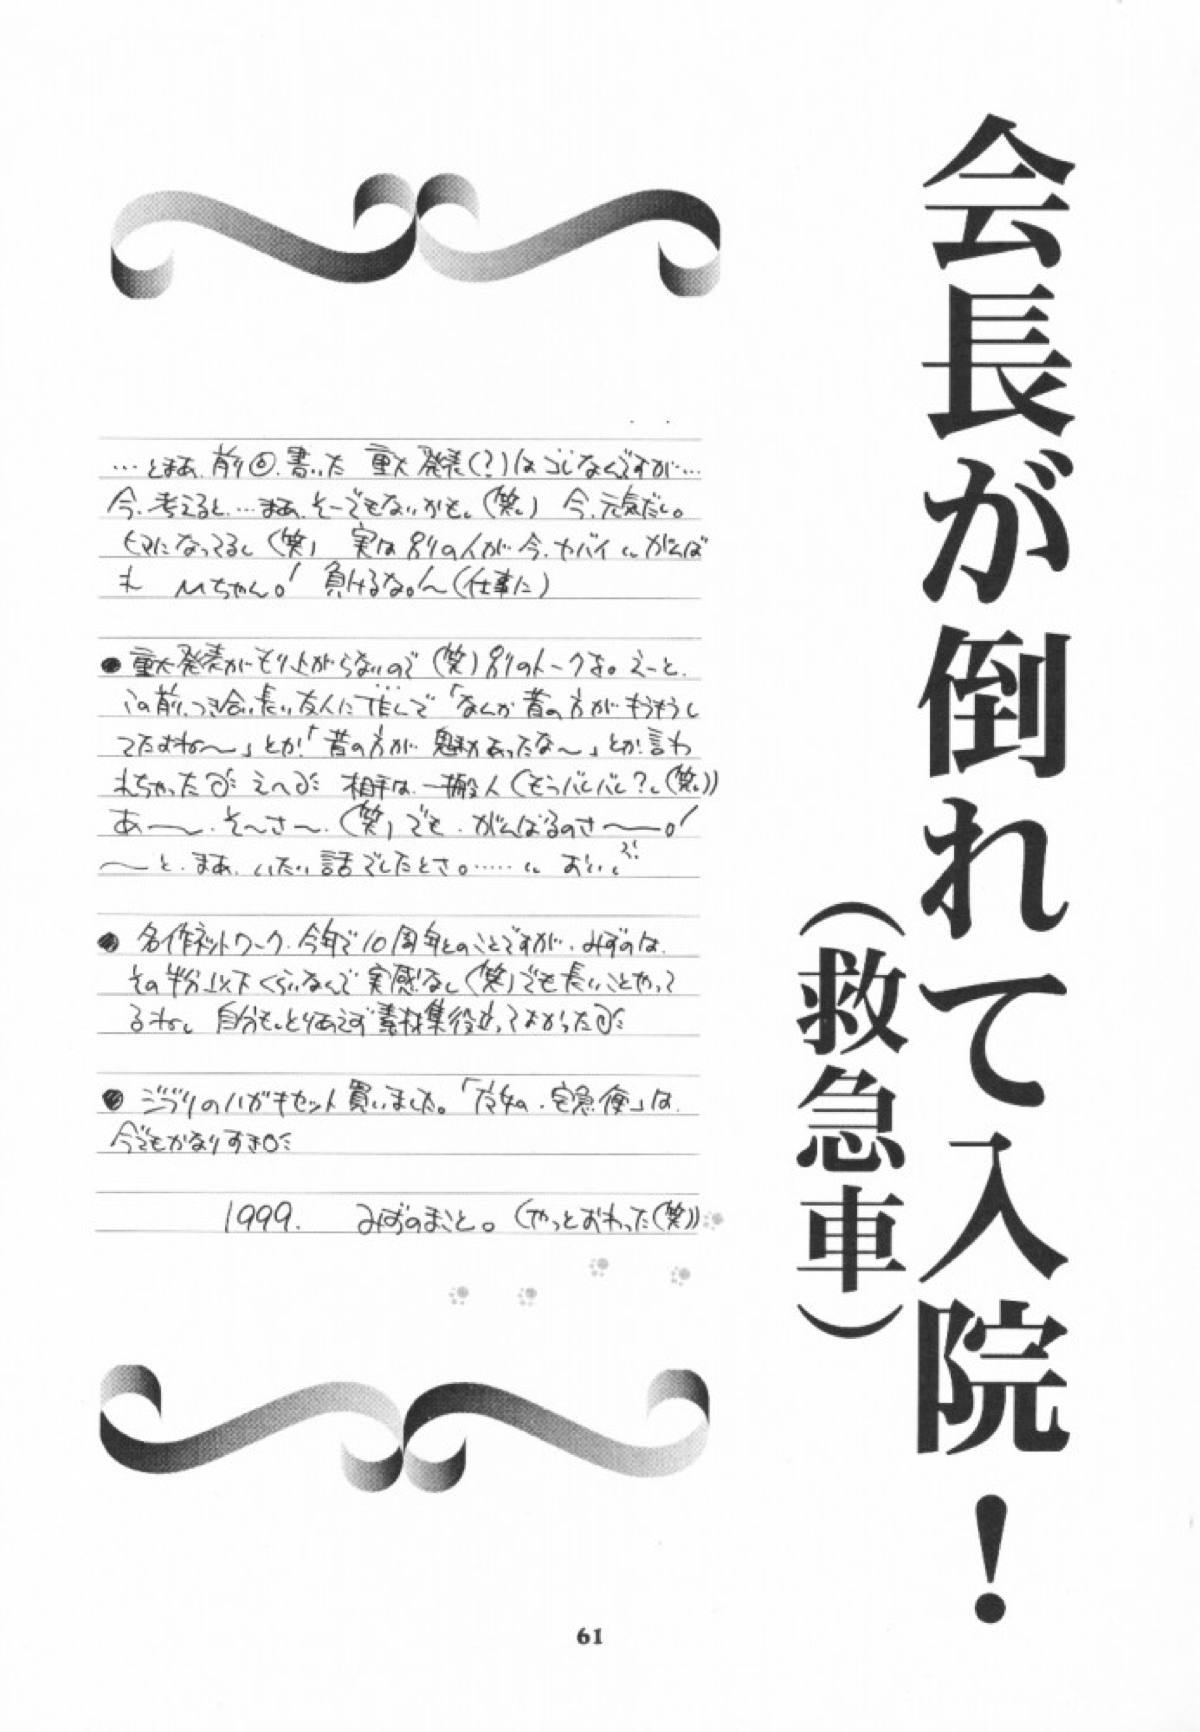 会長が倒れて入院!
(救急車)
…とまあ、前に書いた 重大発表(?)はコレなんですが…
今、考えると…まあ、そーでもないかも。(笑) 今、元気だし。
ヒマになってるし(笑) 実は別の人が今、ヤバイ。がんば
れ Mちゃん。! 負けるな。!〜(仕事に)
● 重大発表がもり上がらないので(笑)別のトークを。えーと、
この前、つき合い長い友人に TELで「なんか昔の方がもうもうし
てたよね〜」とか「昔の方が 魅力あったな〜」とか言わ
れちゃった えへ 相手は、一般人(もうバレバレ?(笑))
あー〜、そ〜さ〜、(笑)でも、がんばるのさ〜〜。!
〜と、まあ、いたい話でしたとさ。…… おいい
● 名作ネットワーク、今年で10周年とのことですが、みずのは、
その半分以下くらいなんで実感なし(笑)でも長いことやって
るねぇ 自分も。とりあえず素材集役立ってよかった
● ジブリのハガキセット買いました。「魔女の宅急便」は、
今でもかなりすき
1999. みずのまこと。(やっとおわった(笑))
61